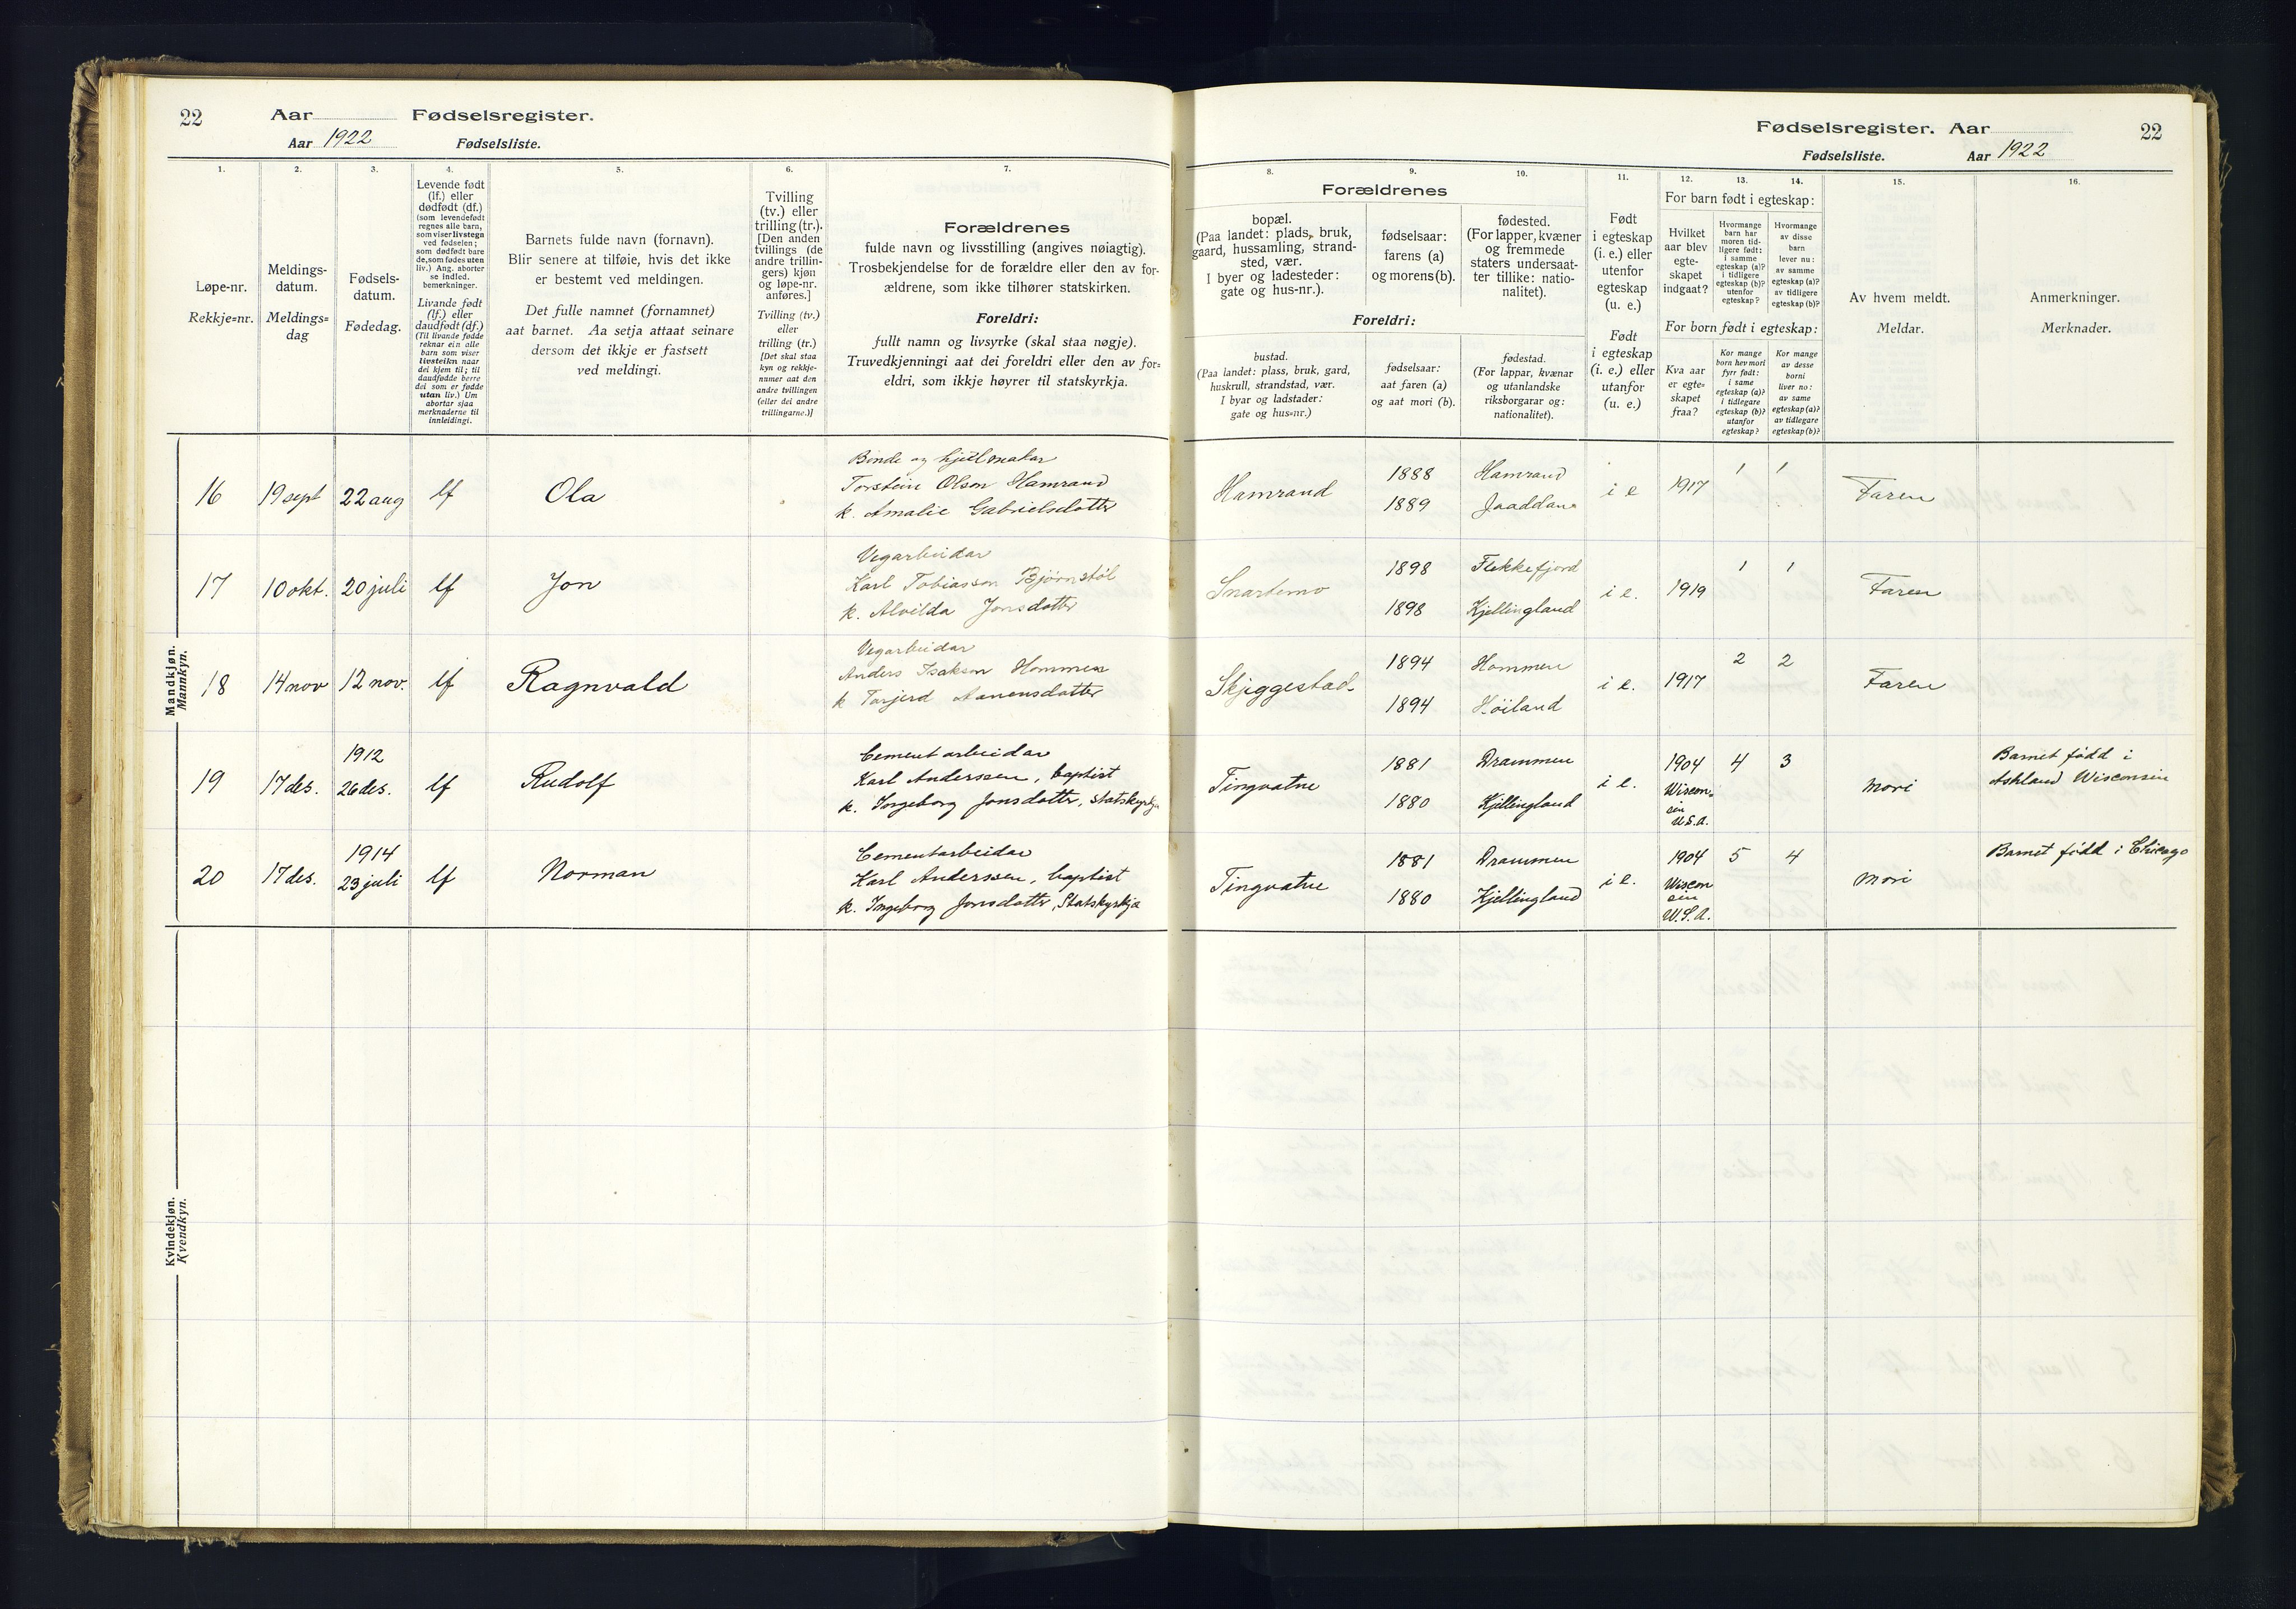 22
Aar
Fødselsregister.
Aar 1922
Fødselsliste.
Fødselsregister. Aar
22
Fødselsliste.
Aar 1922
1.
Løpe-nr.
Rekkje=nr.
2.
Meldings-
datum.
Meldings=
dag
3.
Fødsels-
datum.
Fødedag.
4.
Levende født
(lf.) eller
dødfødt (df.)
(som levendefødt
regnes alle barn,
som viser livstegn
ved fødselen;
som dødfødt bare
de, som fødes uten
liv.) Ang. aborter
se indled.
bemerkninger.
Livande født
(lf.) eller
daudfødt (df.)
(Til livande fødde
reknar ein alle
barn som viser
livsteikn naar
dei kjem til; til
daudfødde berre
dei som er fødde
utan liv.) Um
abortar sjaa
merknaderne til
innleidingi.
5.
Barnets fulde navn (fornavn).
Blir senere at tilføie, hvis det ikke
er bestemt ved meldingen.
Det fulle namnet (fornamnet)
aat barnet. Aa setja attaat seinare
dersom det ikkje er fastsett
ved meldingi.
6.
Tvilling
(tv.) eller
trilling (tr.).
[Den anden
tvillings (de
andre trillin-
gers) kjøn
og løpe-nr.
anføres.]
Tvilling (tv.)
eller
trilling (tr.)
[Det skal staa
kyn og rekkje-
numer aat den
andre tvillingen
(eller dei andre
trillingarne.)]
7.
Forældrenes
fulde navn og livsstilling (angives nøiagtig).
Trosbekjendelse for de forældre eller den av for-
ældrene, som ikke tilhører statskirken.
Foreldri:
fullt namn og livsyrke (skal staa nøgje).
Truvedkjenningi aat dei foreldri eller den av for=
eldri, som ikkje høyrer til statskyrkja.
8.
Forældrenes
bopæl.
(Paa landet: plads, bruk,
gaard, hussamling, strand-
sted, vær.
I byer og ladesteder:
gate og hus-nr.).
Foreldri:
bustad.
(Paa landet: plass, bruk, gard,
huskrull, strandstad, vær.
I byar og ladstader:
gate og hus=nr.)
9.
fødselsaar:
farens (a)
og morens (b).
fødselsaar:
aat faren (a)
og aat mori (b).
10.
fødested.
(For lapper, kvæner
og fremmede
staters undersaat-
ter tillike: natio-
nalitet).
fødestad.
(For lappar, kvænar
og utanlandske
riksborgarar og:
nationalitet).
11.
Født
i egteskap
(i. e.) eller
utenfor
egteskap
(u. e.)
Født
i egteskap
(i. e.) eller
utanfor
(u. e.)
12.
13.
14.
For barn født i egteskap:
Hvilket
aar blev
egte-
skapet
indgaat?
Hvormange
barn har
moren tid-
ligere født:
i samme
egteskap (a)?
i tidligere
egteskap (b)?
utenfor
egteskap?
Hvormange
av disse
barn
lever nu:
av samme
egteskap (a)?
av tidligere
egteskap (b)?
For born født i egteskap:
Kva aar
er egte=
skapet
fraa?
Kor mange
born hev mori
fyrr født:
i same
egteskap (a)?
i tidlegare
egteskap (b)?
utanfor
egteskap?
Kor mange
av desse
borni
liver no:
av same
egteskap (a)?
av tidlegare
egteskap (b)?
15.
Av hvem meldt.
Meldar.
16.
Anmerkninger.
Merknader.
Mandkjøn.
Mannkyn.
16 19 sept 22 aug lf Ola
Bonde og hjulmakar
Torstein Olson Hamrand
k. Amalie Gabrielsdotter
Hamrand 1888 Hamrand
1889 Jaaddan
i e 1917 1 1 Faren
17 10 okt. 20 juli lf Jon
Vegarbeidar
Karl Tobiasson Bjørnstøl
k. Alvilda Jonsdotter
Snartemo 1898 Flekkefjord
1898 Kjellingland
i e. 1919 1 1 Faren
18 14 nov 12 nov. lf Ragnvald
Vegarbeidar
Anders Isakson Hommen
k Torjerd Aanensdotter
Skjeggestad 1894 Hommen
1894 Høiland
i e. 1917 2 2 Faren
19 17 des. 1912 26 des. lf Rudolf
Cementarbeidar
Karl Anderssen, baptist
k. Ingeborg Jonsdotter, statskyrkja
Tingvatne 1881 Drammen
1880 Kjellingland
i e. 1904 Wiscon-
sin
U.S.A.
4 3 Mori
Barnet fødd i
Ashland Wisconsin
20 17 des. 1914 23 juli lf Norman
Cementarbeidar
Karl Anderssen, baptist
k. Ingeborg Jonsdotter, Statskyrkja
Tingvatne 1881 Drammen
1880 Kjellingland
i e. 1904 Wiscon
sin
U.S.A.
5 4 Mori
Barnet fødd i Chicago
Kvindekjøn.
Kvendkyn.